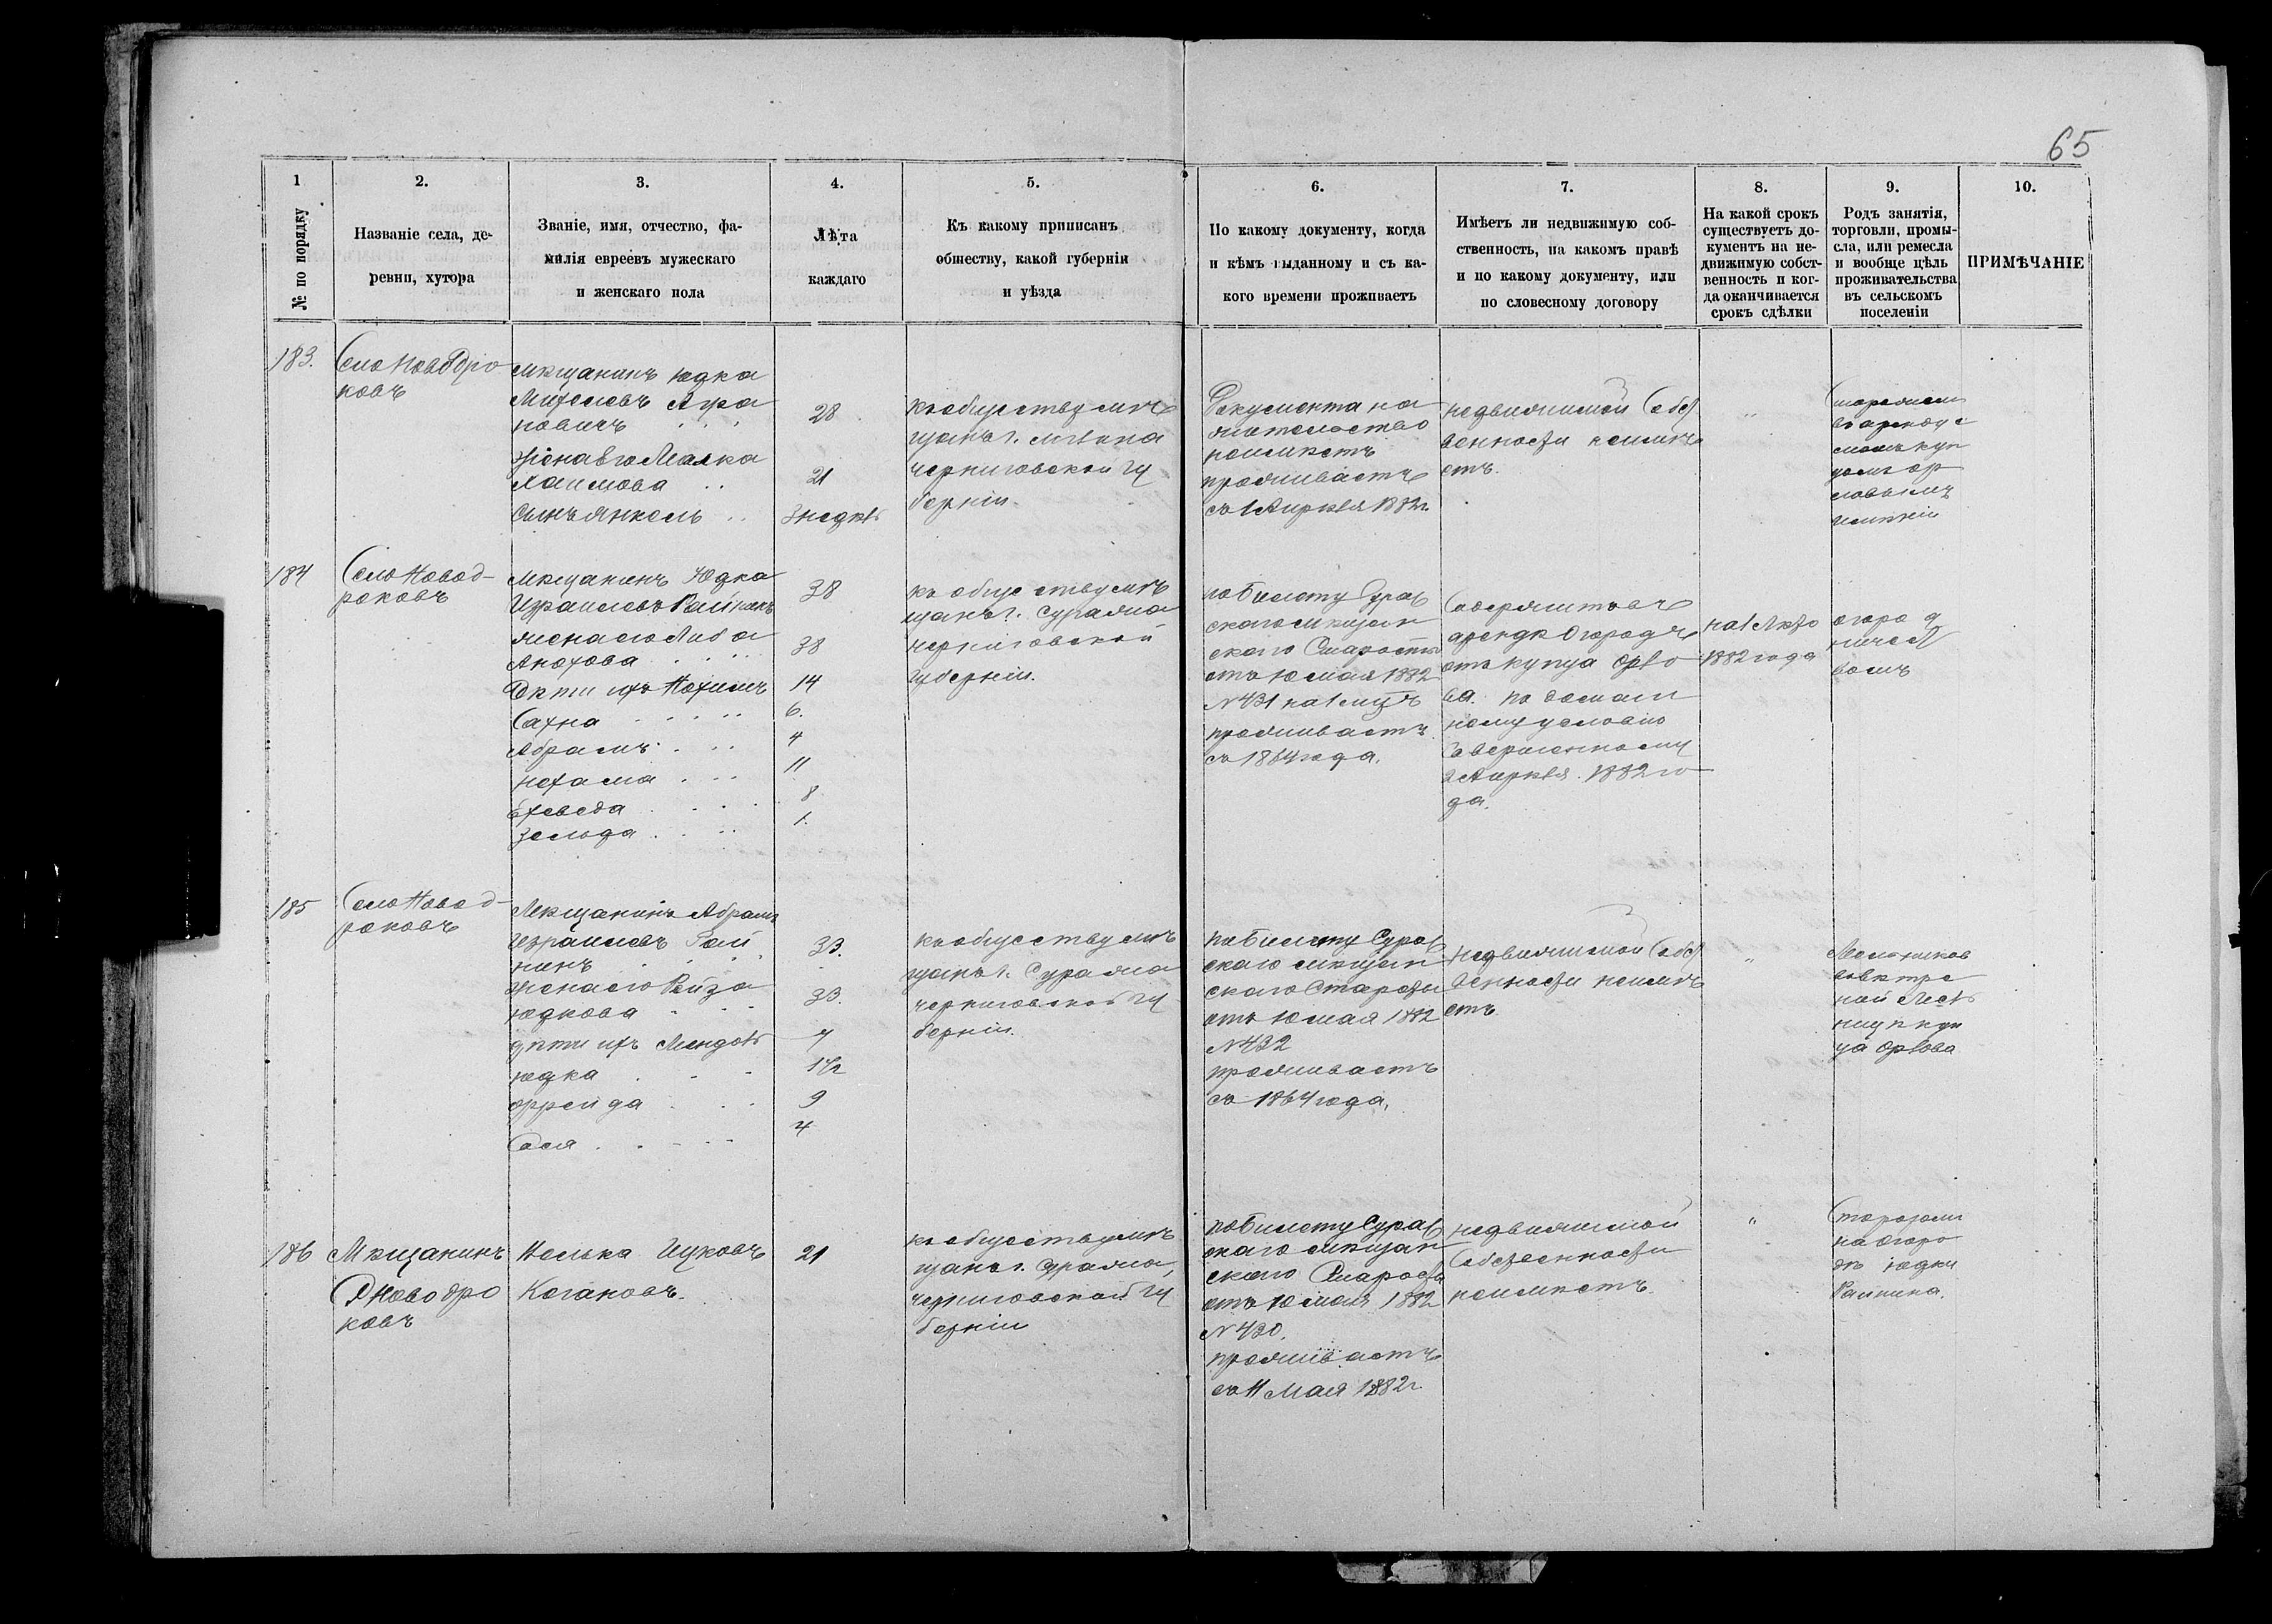 65
1
№ по порядку
2.
Названіе села, де-
ревни, хутора
3.
Званіе, имя, отчество, фа-
милія евреевъ мужескаго
и женскаго пола
4.
Лѣта
каждаго
5.
Къ какому приписанъ
обществу, какой губерніи
и уѣзда
6.
По какому документу, когда
и кѣмъ выданному и съ ка-
кого времени проживаетъ
7.
Имѣетъ ли недвижимую соб-
ственность, на какомъ правѣ
и по какому документу, или
по словесному договору
8.
На какой срокъ
существуетъ до-
кументъ на не-
движимую собст-
венность и ког-
да оканчивается
срокъ сдѣлки
9.
Родъ занятія,
торговли, промы-
сла, или ремесла
и вообще цѣль
проживательства
въ сельскомъ
поселеніи
10.
ПРИМѢЧАНІЕ
183.
Село Новодро
ковъ
Мѣщанинъ Юдка
новичъ
жена его Малка
Хаимова
Сынъ Янкель
28
21
3 недѣли
къ обществу мѣ
щанъ г. Мглина
черниговской гу
берніи.
Документа на
жительство
неимѣетъ
проживаетъ
съ 1 Апрѣля 1882 г.
недвижимой собст
венности неимѣ
етъ.
"
184
Село Новод-
роковъ
Мѣщанинъ Юдка
Израилевъ Райнинъ
жена его Либа
Дѣти ихъ Нохимъ
Сахна
Абрамъ
Нехама
Зельда
38
38
14
6.
4
11
8
1.
къ обществу мѣ
щанъ г. Суража
черниговской
губерніи.
по Билету Сураж
скаго мѣщан
скаго Старосты
отъ 10 мая 1882
№ 431 на 1 мѣ
проживаетъ
съ 1864 года.
Содержитъ въ
арендѣ огородъ
отъ купца Орло
ва по домаш
нему условію
Совершенному
Апрѣля 1882 го
да.
1882 года
огород
ничест
вомъ
185
Село Новод-
роковъ
Мѣщанинъ Абрамъ
Израилевъ Рай
нинъ
жена его Рейза
Юдкова
дѣти ихъ Мендель
Юдка
Фрейда
Сося
33.
33.
7
1 1/2
9
4
къ обществу мѣ
щанъ г. Суража
черниговской гу
берніи.
по Билету Сураж
скаго мѣщан
скаго Старосты
отъ 10 мая 1882
№ 432
проживаетъ
съ 1864 года.
недвижимой собст
венности неимѣ
етъ
"
ца Орлова
186
Мѣщанинъ
С. Новодро
ковъ
Ицковъ
Когановъ.
21
къ обществу мѣ
щанъ г. Суража,
черниговской гу
берніи
по Билету Сураж
скаго мѣщан
скаго Старосты
отъ 10 мая 1882
№ 430.
проживаетъ
съ 11 Мая 1882 г.
недвижимой
собственности
неимѣетъ.
"
на огоро
дѣ Юдки
Райнина.